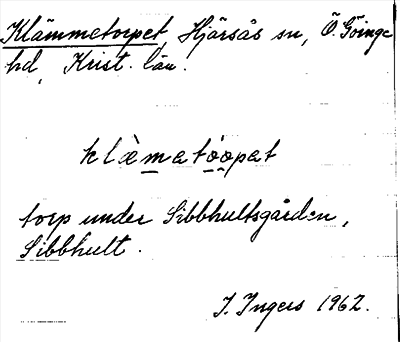 Klämmetorpet, Hjärsås sn, Ö. Göinge
hd, Krist. län.
klæ̀matòopat
torp under Sibbhultsgården,
Sibbhult.
I. Ingers 1962.